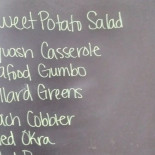 weet Potato Salad
uash Casserole
afood Gumbo
llard Greens
ach Cobbler
ied Okra